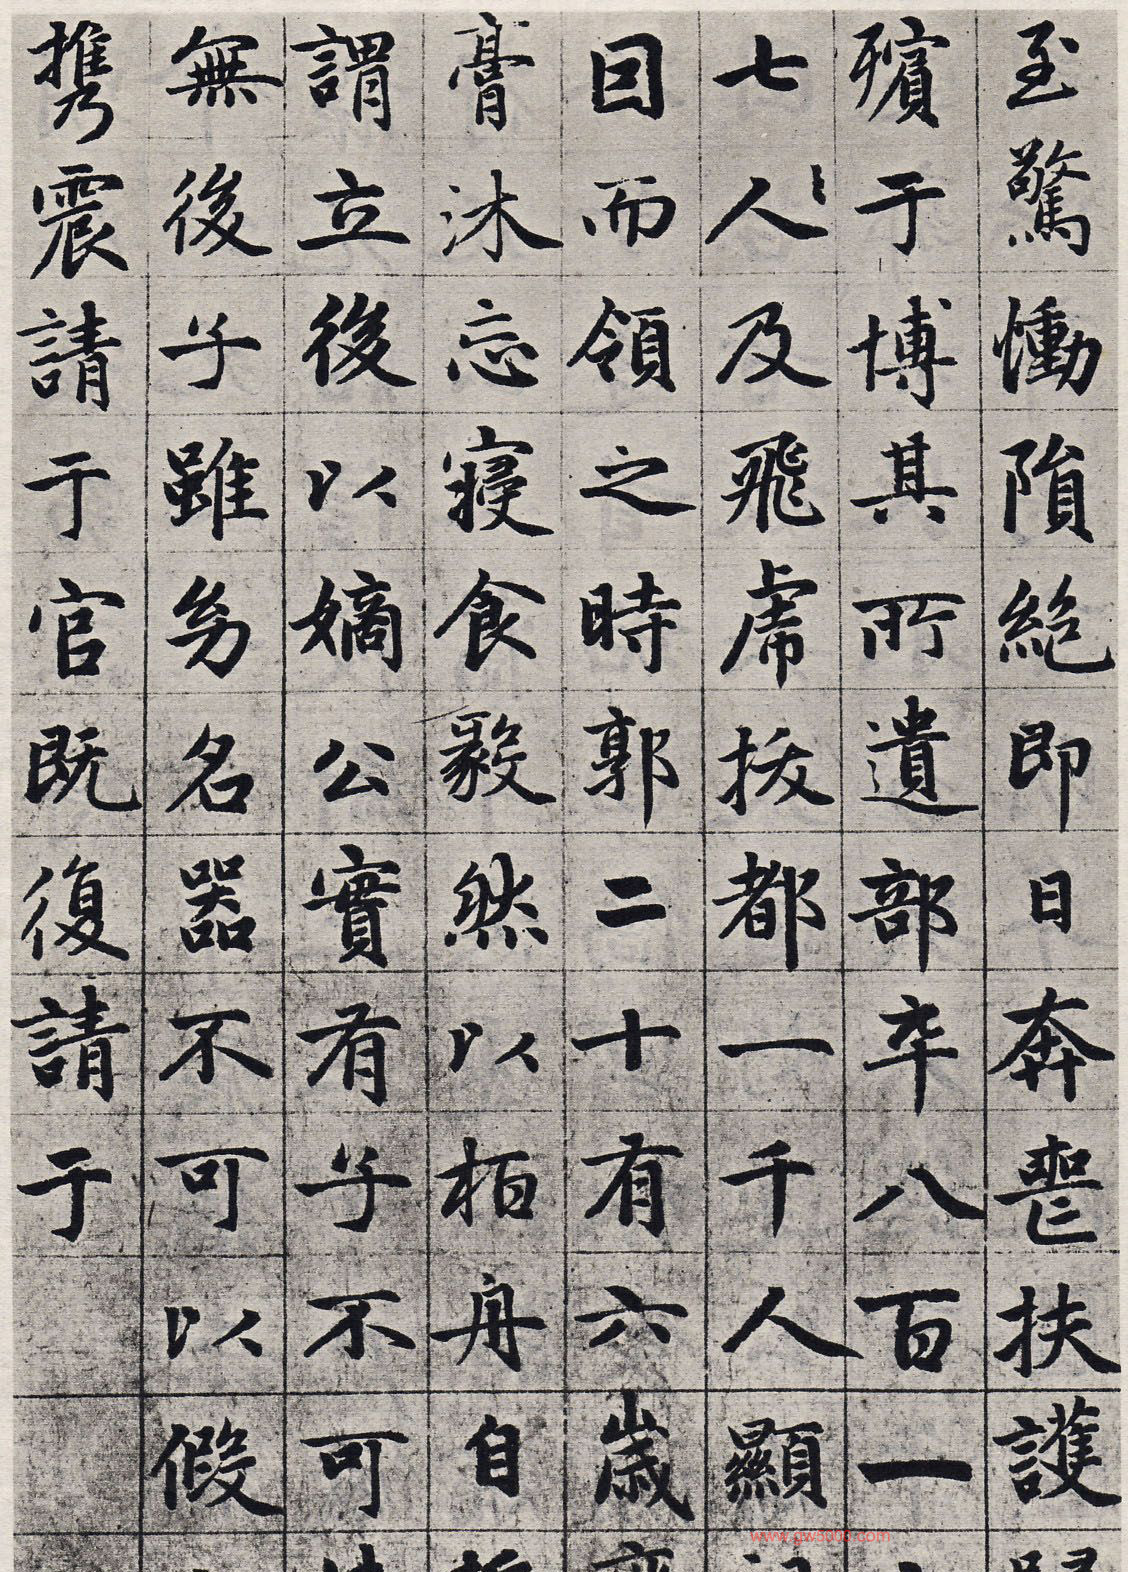 至驚慟隕絕即日奔喪扶護
殯于博其所遺部卒八百一
七人及飛虎拔都一千人顯
曰而領之時郭二十有六歲
膏沐忘寢食毅然以栢舟自
謂立後以嫡公實有子不可
無後子雖幼名器不可以假
携乃震請于官既復請于
www.gw5000.com